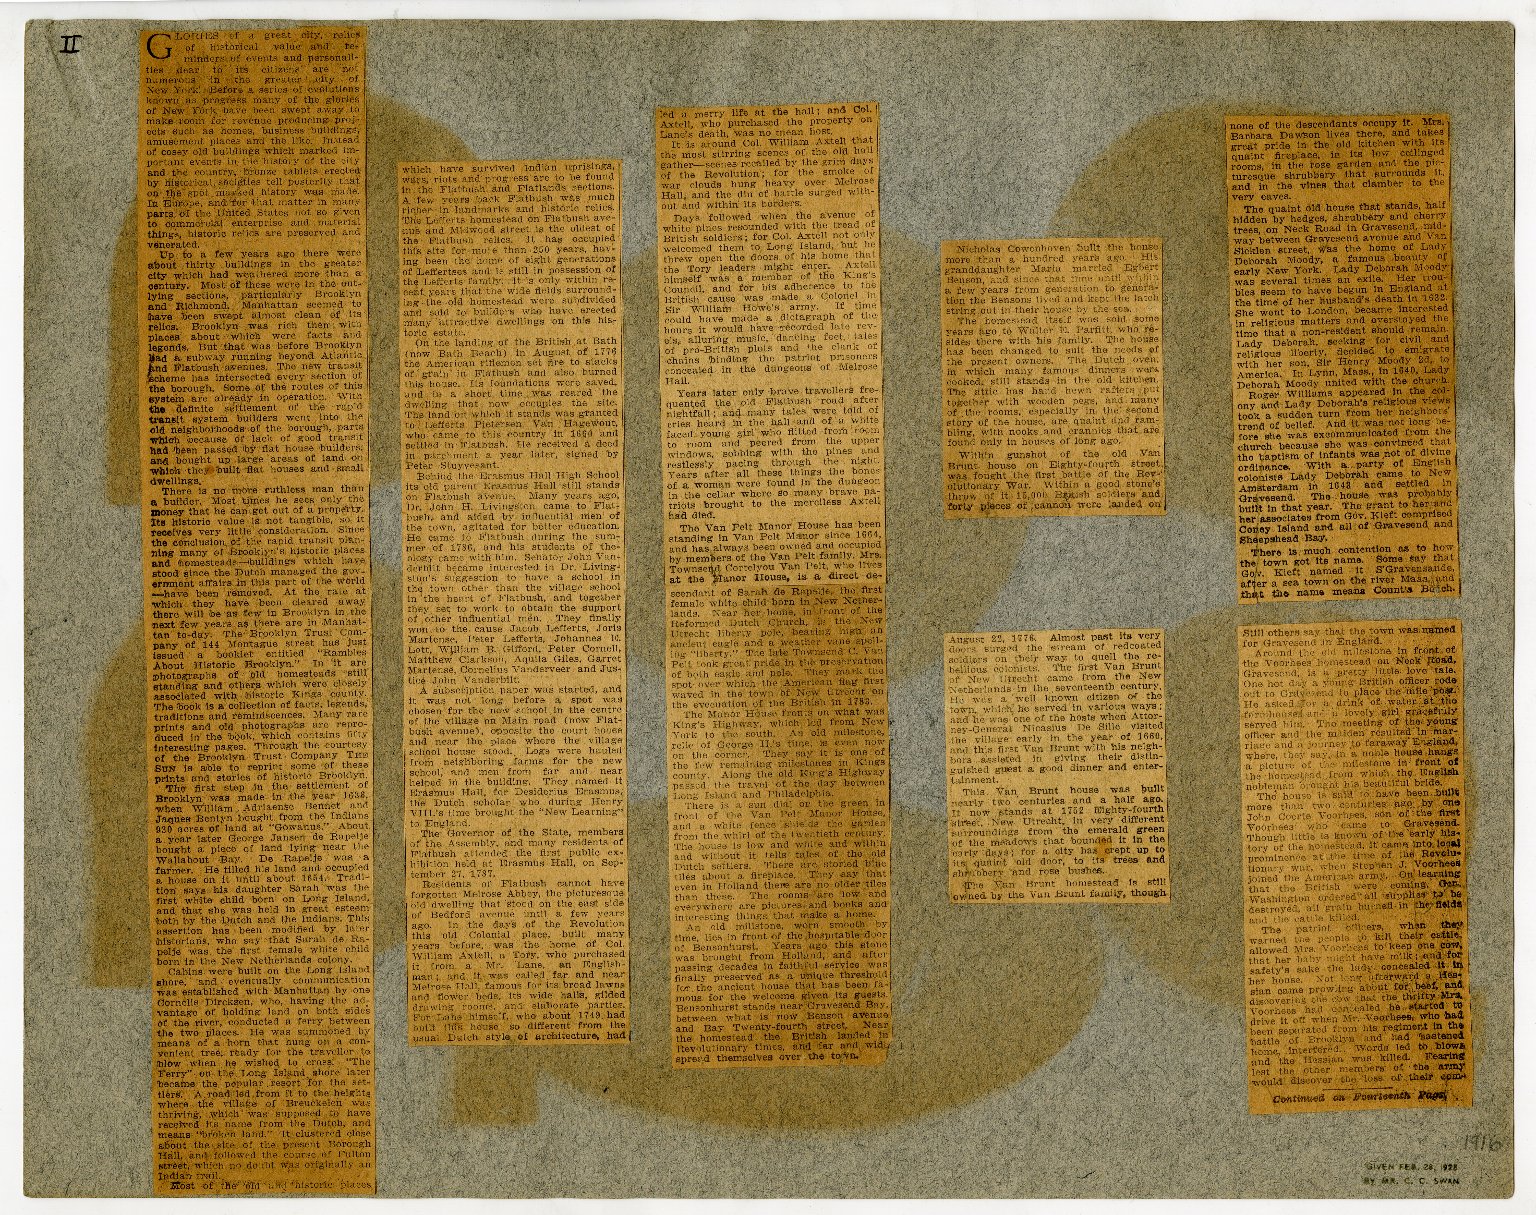 II
GLORIES of a great city, relics
of historical value and re-
minders of events and personali-
ties dear to its citizens are not
numerous in the greater city of
New York. Before a series of evolutions
known as progress many of the glories
of New York have been swept away to
make room for revenue producing proj-
ects such as homes, business buildings,
amusement places and the like. Instead
of cosey old buildings which marked im-
portant events in the history of the city
and the country, bronze tablets erected
by historical societies tell posterity that
on the spot marked history was made.
In Europe, and for that matter in many
parts of the United States not so given
to commercial enterprise and material
things, historic relics are preserved and
venerated.
Up to a few years ago there were
about thirty buildings in the greater
city which had weathered more than a
century. Most of these were in the out-
lying sections, particularly Brooklyn
and Richmond. Manhattan seemed to
have been swept almost clean of its
relics. Brooklyn was rich then with
places about which were facts and
legends. But that was before Brooklyn
had a subway running beyond Atlantic
and Flatbush avenues. The new transit
scheme has intersected every section of
the borough. Some of the routes of this
system are already in operation. With
the definite settlement of the rapid
transit system builders went into the
old neighborhoods of the borough, parts
which because of lack of good transit
had been passed by flat house builders;
and bought up large areas of land on
which they built flat houses and small
dwellings.
There is no more ruthless man than
a builder. Most times he sees only the
money that he can get out of a property.
Its historic value is not tangible, so it
receives very little consideration. Since
the conclusion of the rapid transit plan-
ning many of Brooklyn's historic places
and homesteads—buildings which have
stood since the Dutch managed the gov-
ernment affairs in this part of the world
—have been removed. At the rate at
which they have been cleared away
there will be as few in Brooklyn in the
next few years as there are in Manhat-
tan to-day. The Brooklyn Trust Com-
pany of 144 Montague street has just
issued a booklet entitled "Rambles
About Historic Brooklyn." In it are
photographs of old homesteads still
standing and others which were closely
associated with historic Kings county.
The book is a collection of facts, legends,
traditions and reminiscences. Many rare
prints and old photographs are repro-
duced in the book, which contains fifty
interesting pages. Through the courtesy
of the Brooklyn Trust Company THE
SUN is able to reprint some of these
prints and stories of historic Brooklyn.
The first step in the settlement of
Brooklyn was made in the year 1636,
when William Adriaense Bennet and
Jaques Bentyn bought from the Indians
930 acres of land at "Gowanus." About
a year later George Jansen de Rapelje
bought a piece of land lying near the
Wallabout Bay. De Rapelje was a
farmer. He tilled his land and occupied
a house on it until about 1654. Tradi-
tion says his daughter Sarah was the
first white child born on Long Island,
and that she was held in great esteem
both by the Dutch and the Indians. This
assertion has been modified by later
historians, who say that Sarah de Ra-
pelje was the first female white child
born in the New Netherlands colony.
Cabins were built on the Long Island
shore, and eventually communication
was established with Manhattan by one
Cornelis Dircksen, who, having the ad-
vantage of holding land on both sides
of the river, conducted a ferry between
the two places. He was summoned by
means of a horn that hung on a con-
venient tree, ready for the traveller to
blow when he wished to cross. "The
Ferry" on the Long Island shore later
became the popular resort for the set-
tlers. A road led from it to the heights
where the village of Breuckelen was
thriving, which was supposed to have
received its name from the Dutch, and
means "broken land." It clustered close
about the site of the present Borough
Hall, and followed the course of Fulton
street, which no doubt was originally an
Indian trail.
Most of the old and historic places
which have survived Indian uprisings,
wars, riots and progress are to be found
in the Flatbush and Flatlands sections.
A few years back Flatbush was much
richer in landmarks and historic relics.
The Lefferts homestead on Flatbush ave-
nue and Midwood street is the oldest of
the Flatbush relics. It has occupied
this site for more than 250 years, hav-
ing been the home of eight generations
of Leffertses and is still in possession of
the Lefferts family. It is only within re-
cent years that the wide fields surround-
ing the old homestead were subdivided
and sold to builders who have erected
many attractive dwellings on this his-
toric estate.
On the landing of the British at Bath
(now Bath Beach) in August of 1776
the American riflemen set fire to stacks
of grain in Flatbush and also burned
this house. Its foundations were saved,
and in a short time was reared the
dwelling that now occupies the site.
The land on which it stands was granted
to Lefferts Pietersen Van Hagewout,
who came to this country in 1660 and
settled in Flatbush. He received a deed
in parchment a year later, signed by
Peter Stuyvesant.
Behind the Erasmus Hall High School
its old parent Erasmus Hall still stands
on Flatbush avenue. Many years ago,
Dr. John H. Livingston came to Flat-
bush, and aided by influential men of
the town, agitated for better education.
He came to Flatbush during the sum-
mer of 1786, and his students of the-
ology came with him. Senator John Van-
derbilt became interested in Dr. Living-
ston's suggestion to have a school in
the town other than the village school
in the heart of Flatbush, and together
they set to work to obtain the support
of other influential men. They finally
won to the cause Jacob Lefferts, Joris
Martense, Peter Lefferts, Johannes E.
Lott, William B. Gifford, Peter Cornell,
Matthew Clarkson, Aquila Giles, Garret
Martense, Cornelius Vanderveer and Jus-
tice John Vanderbilt.
A subscription paper was started, and
it was not long before a spot was
chosen for the new school in the centre
of the village on Main road (now Flat-
bush avenue), opposite the court house
and near the place where the village
school house stood. Logs were hauled
from neighboring farms for the new
school, and men from far and near
helped in the building. They named it
Erasmus Hall, for Desiderius Erasmus,
the Dutch scholar who during Henry
VIII.'s time brought the "New Learning"
to England.
The Governor of the State, members
of the Assembly, and many residents of
Flatbush attended the first public ex-
hibition held at Erasmus Hall, on Sep-
tember 27, 1787.
Residents of Flatbush cannot have
forgotten Melrose Abbey, the picturesque
old dwelling that stood on the east side
of Bedford avenue until a few years
ago. In the days of the Revolution
this old Colonial place, built many
years before, was the home of Col.
William Axtell, a Tory, who purchased
it from a Mr. Lane, an English-
man, and it was called far and near
Melrose Hall, famous for its broad lawns
and flower beds, its wide halls, gilded
drawing rooms and elaborate parties.
For Lane himself, who about 1749 had
built this house so different from the
usual Dutch style of architecture, had
led a merry life at the hall; and Col.
Axtell, who purchased the property on
Lane's death, was no mean host.
It is around Col. William Axtell that
the most stirring scenes of the old hall
gather—scenes recalled by the grim days
of the Revolution; for the smoke of
war clouds hung heavy over Melrose
Hall, and the din of battle surged with-
out and within its borders.
Days followed when the avenue of
white pines resounded with the tread of
British soldiers; for Col. Axtell not only
welcomed them to Long Island, but he
threw open the doors of his home that
the Tory leaders might enter. Axtell
himself was a member of the King's
Council, and for his adherence to the
British cause was made a Colonel in
Sir William Howe's army. If time
could have made a dictagraph of the
hours it would have recorded late rev-
els, alluring music, dancing feet, tales
of pro-British plots and the clank of
chains binding the patriot prisoners
concealed in the dungeons of Melrose
Hall.
Years later only brave travellers fre-
quented the old Flatbush road after
nightfall; and many tales were told of
cries heard in the hall and of a white
faced young girl who flitted from room
to room and peered from the upper
windows, sobbing with the pines and
restlessly pacing through the night.
Years after all these things the bones
of a woman were found in the dungeon
in the cellar where so many brave pa-
triots brought to the merciless Axtell
had died.
The Van Pelt Manor House has been
standing in Van Pelt Manor since 1664,
and has always been owned and occupied
by members of the Van Pelt family. Mrs.
Townsend Cortelyou Van Pelt, who lives
at the Manor House, is a direct de-
scendant of Sarah de Rapelje, the first
female white child born in New Nether-
lands. Near her home, in front of the
Reformed Dutch Church, is the New
Utrecht liberty pole, bearing high an
ancient eagle and a weather vane spell-
ing "liberty." The late Townsend C. Van
Pelt took great pride in the preservation
of both eagle and pole. They mark the
spot over which the American flag first
waved in the town of New Utrecht on
the evacuation of the British in 1783.
The Manor House fronts on what was
King's Highway, which led from New
York to the south. An old milestone,
relic of George II.'s time, is even now
on the corner. They say it is one of
the few remaining milestones in Kings
county. Along the old King's Highway
passed the travel of the day between
Long Island and Philadelphia.
There is a sun dial on the green in
front of the Van Pelt Manor House,
and a white fence shields the garden
from the whirl of the twentieth century.
The house is low and white and within
and without it tells tales of the old
Dutch settlers. There are storied blue
tiles about a fireplace. They say that
even in Holland there are no older tiles
than these. The rooms are low and
everywhere are pictures and books and
interesting things that make a home.
An old millstone, worn smooth by
time, lies in front of the hospitable door
of Bensonhurst. Years ago this stone
was brought from Holland, and after
passing decades in faithful service was
finally preserved as a unique threshold
for the ancient house that has been fa-
mous for the welcome given its guests.
Bensonhurst stands near Gravesend Bay,
between what is now Benson avenue
and Bay Twenty-fourth street. Near
the homestead the British landed in
Revolutionary times, and far and wide
spread themselves over the town.
Nicholas Cowenhoven built the house
more than a hundred years ago. His
granddaughter Maria married Egbert
Benson, and since that time until within
a few years from generation to genera-
tion the Bensons lived and kept the latch
string out in their house by the sea.
The homestead itself was sold some
years ago to Walter E. Parfitt, who re-
sides there with his family. The house
has been changed to suit the needs of
the present owners. The Dutch oven
in which many famous dinners were
cooked, still stands in the old kitchen.
The attic has hard hewn rafters put
together with wooden pegs, and many
of the rooms, especially in the second
story of the house, are quaint and ram-
bling, with nooks and crannies that are
found only in houses of long ago.
Within gunshot of the old Van
Brunt house on Eighty-fourth street,
was fought the first battle of the Rev-
olutionary War. Within a good stone's
throw of it 15,000 British soldiers and
forty pieces of cannon were landed on
August 22, 1776. Almost past its very
doors surged the stream of redcoated
soldiers on their way to quell the re-
bellious colonists. The first Van Brunt
of New Utrecht came from the New
Netherlands in the seventeenth century.
He was a well known citizen of the
town, which he served in various ways;
and he was one of the hosts when Attor-
ney-General Nicasius De Sille visited
the village early in the year of 1660,
and this first Van Brunt with his neigh-
bors assisted in giving their distin-
guished guest a good dinner and enter-
tainment.
This Van Brunt house was built
nearly two centuries and a half ago.
It now stands at 1752 Eighty-fourth
street, New Utrecht, in very different
surroundings from the emerald green
of the meadows that bounded it in the
early days; for a city has crept up to
its quaint, old door, to its trees and
shrubbery and rose bushes.
The Van Brunt homestead is still
owned by the Van Brunt family, though
none of the descendants occupy it. Mrs.
Barbara Dawson lives there, and takes
great pride in the old kitchen with its
quaint fireplace, in its low ceilinged
rooms, in the rose garden and the pic-
turesque shrubbery that surrounds it,
and in the vines that clamber to the
very eaves.
The quaint old house that stands, half
hidden by hedges, shrubbery and cherry
trees, on Neck Road in Gravesend, mid-
way between Gravesend avenue and Van
Sicklen street, was the home of Lady
Deborah Moody, a famous beauty of
early New York. Lady Deborah Moody
was several times an exile. Her trou-
bles seem to have begun in England at
the time of her husband's death in 1632.
She went to London, became interested
in religious matters and overstayed the
time that a non-resident should remain.
Lady Deborah, seeking for civil and
religious liberty, decided to emigrate
with her son, Sir Henry Moody 2d, to
America. In Lynn, Mass., in 1640, Lady
Deborah Moody united with the church.
Roger Williams appeared in the col-
ony and Lady Deborah's religious views
took a sudden turn from her neighbors'
trend of belief. And it was not long be-
fore she was excommunicated from the
church because she was convinced that
the baptism of infants was not of divine
ordinance. With a party of English
colonists Lady Deborah came to New
Amsterdam in 1643 and settled in
Gravesend. The house was probably
built in that year. The grant to her and
her associates from Gov. Kieft comprised
Coney Island and all of Gravesend and
Sheepshead Bay.
There is much contention as to how
the town got its name. Some say that
Gov. Kieft named it S'Gravensande,
after a sea town on the river Maas, and
that the name means Count's Beach.
Still others say that the town was named
for Gravesend in England.
Around the old milestone in front of
the Voorhees homestead on Neck Road,
Gravesend, is a pretty little love tale.
One hot day a young British officer rode
out to Gravesend to place the mile post.
He asked for a drink of water at the
farmhouse and a lovely girl gracefully
served him. The meeting of the young
officer and the maiden resulted in mar-
riage and a journey to faraway England,
where, they say, in a noble house hangs
a picture of the milestone in front of
the homestead from which the English
nobleman brought his beautiful bride.
The house is said to have been built
more than two centuries ago by one
John Coerte Voorhees, son of the first
Voorhees who came to Gravesend.
Though little is known of the early his-
tory of the homestead, it came into local
prominence at the time of the Revolu-
tionary war, when Stephen J. Voorhees
joined the American army. On learning
that the British were coming, Gen.
Washington ordered all supplies to be
destroyed, all grain burned in the fields
and the cattle killed.
The patriot officers, when they
warned the people to kill their cattle,
allowed Mrs. Voorhees to keep one cow,
that her baby might have milk; and for
safety's sake the lady concealed it in
her house. Not long afterward a Hes-
sian came prowling about for beef, and
discovering the cow that the thrifty Mrs.
Voorhees had concealed he started to
drive it off when Mr. Voorhees, who had
been separated from his regiment in the
battle of Brooklyn and had hastened
home, interfered. Words led to blows
and the Hessian was killed. Fearing
lest the other members of the army
would discover the loss of their com-
Continued on Fourteenth Page.
1916
GIVEN FEB. 28, 1928
BY MR. C. C. SWAN